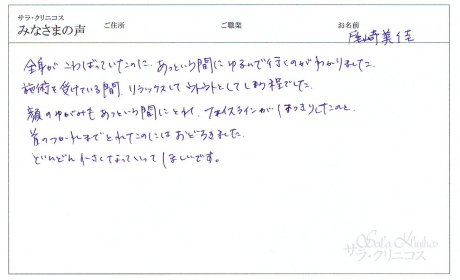 サラ・クリニコス
みなさまの声 ご住所 ご職業 お名前
尾崎美佳
全身がこわばっていたのに、あっという間にゆるんで行くのがわかりました。
施術を受けている間、リラックスしてウトウトとしてしまう程でした。
顔のゆがみもあっという間にとれ、フェイスラインがはっきりしたのと、
首のつかれまでとれたのにはおどろきました。
どんどん小さくなっていってほしいです。
Sala Klinikos
サラ・クリニコス